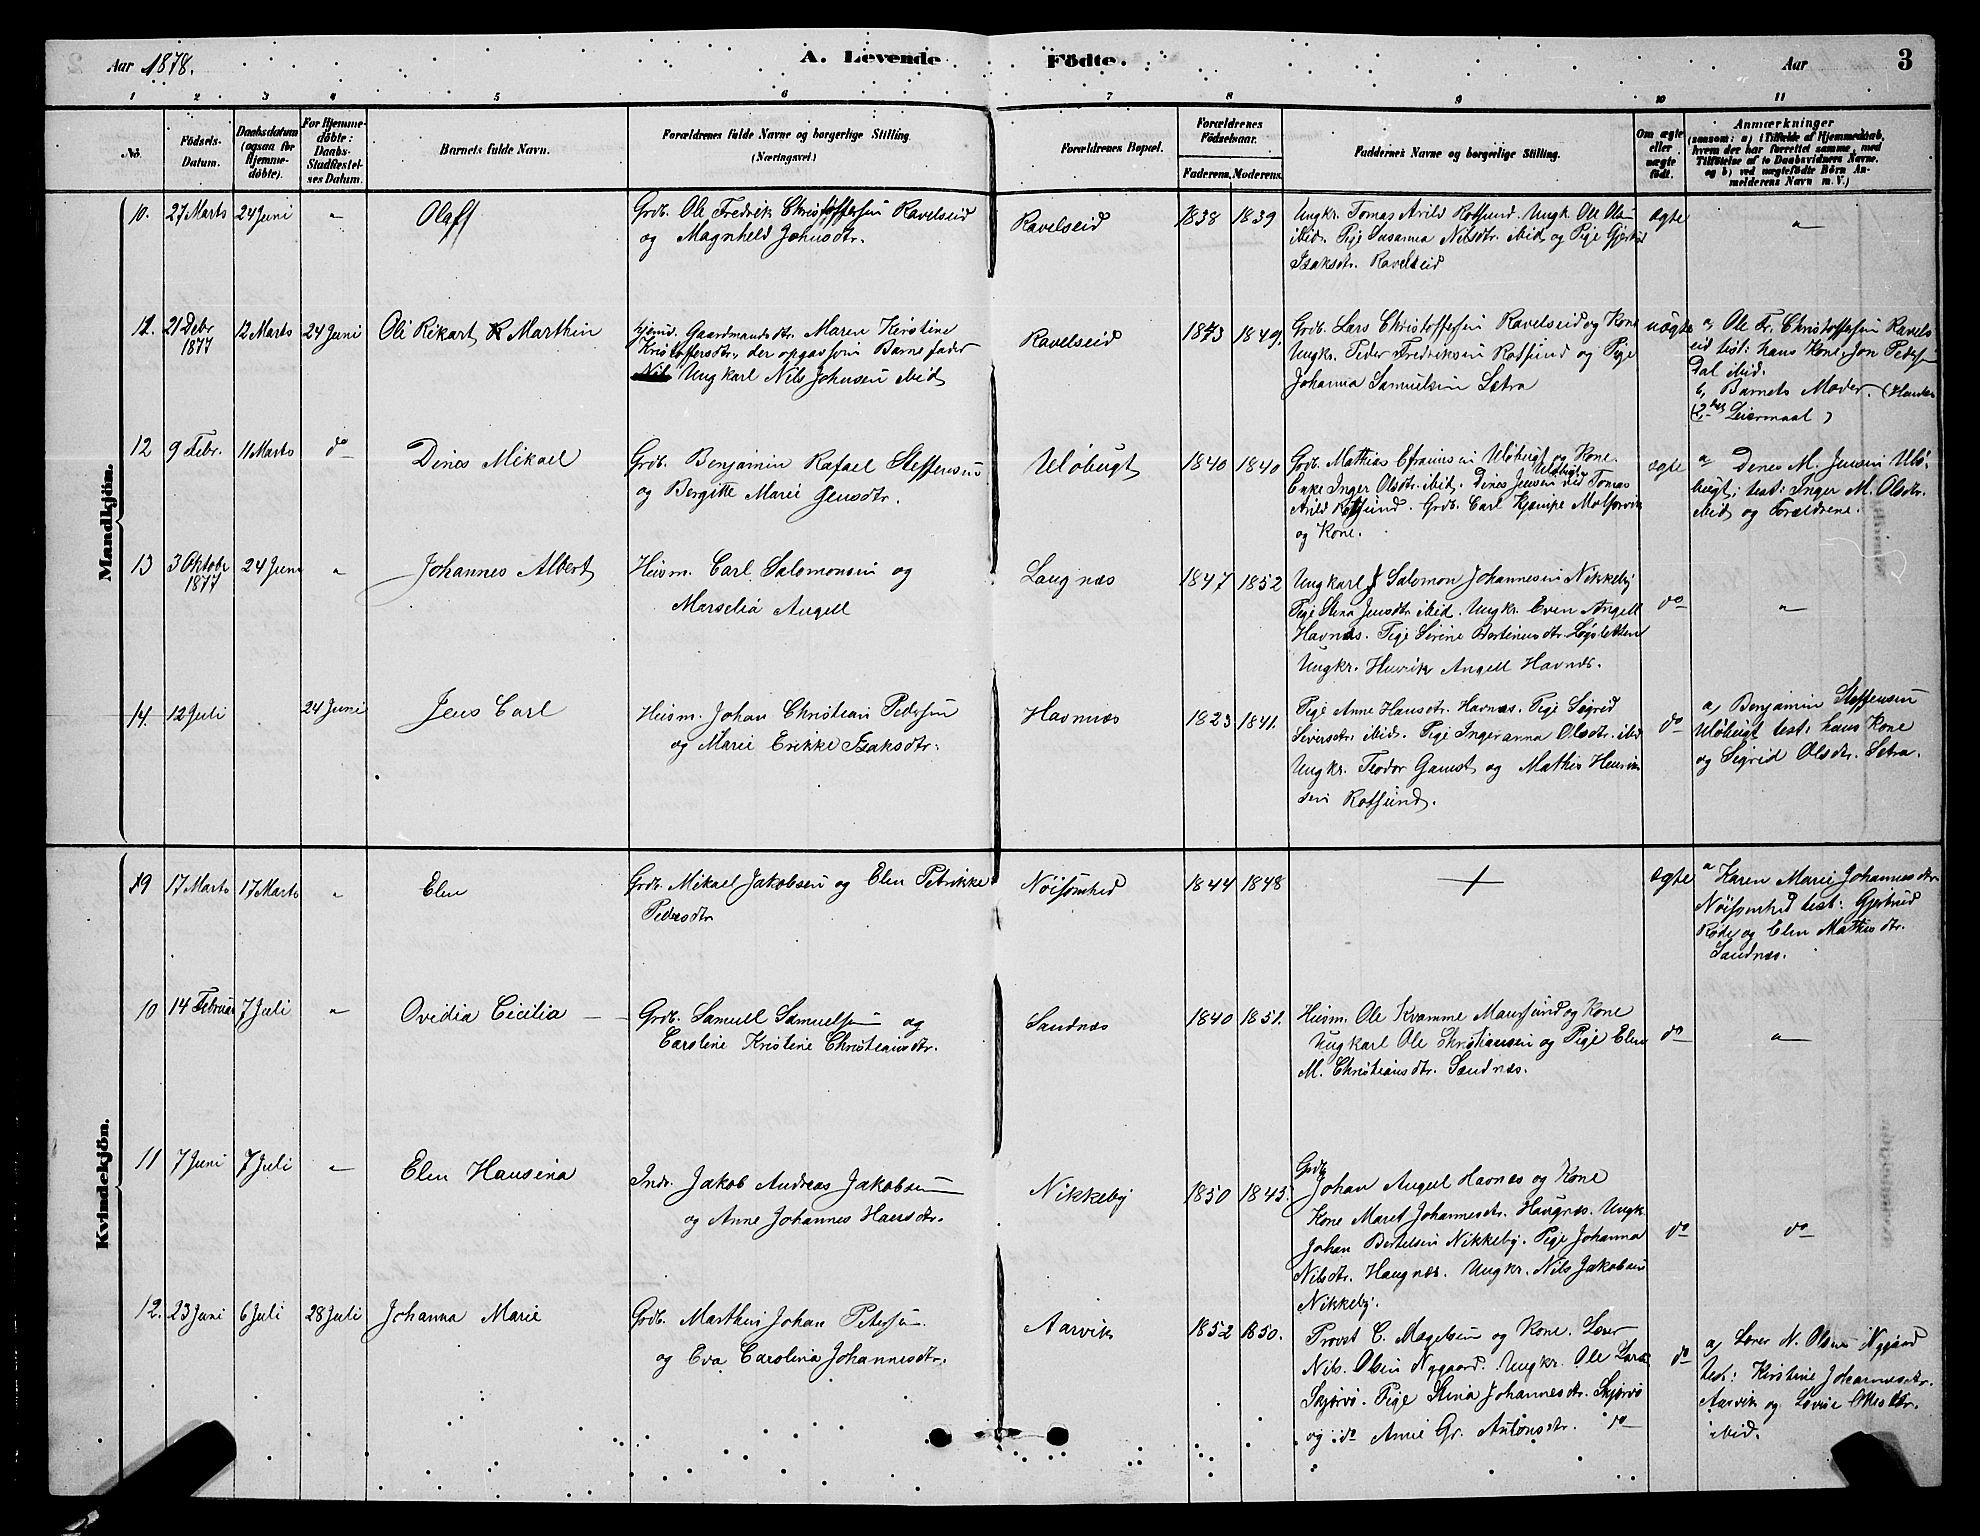 Aar 1878.
A. Levende Födte.
Aar
3
1 2 3 4 5 6 7 8 9 10 11
No.
Födsels-
Datum.
Daabsdatum
(ogsaa for
Hjemme-
døbte).
For Hjemme-
döbte:
Daabs-
Stadfæstel-
ses Datum.
Barnets fulde Navn.
Forældrenes fulde Navne og borgerlige Stilling.
(Næringsvei)
Forældrenes Bopæl.
Forældrenes
Födselsaar.
Faderens. Moderens.
Faddernes Navne og borgerlige Stilling.
Om ægte
eller
uægte
födt.
Anmærkninger
(saasom: a) i Tilfælde af Hjemmedaab,
hvem der har forrettet samme, med
Tilföielse af to Daabsvidners Navne.
og b) ved uægtefödte Börn An-
melderens Navn m. V.)
Mandkjön.
10. 27 Marts 24 Juni " Olaf
Grdb. Ole Fredrik Christoffersen Ravelseid
og Magnheld Johnsdtr.
Ravelseid 1838 1839
Ungkr. Tomas Arild Rotsund. Ungk. Ole Olsen
ibid. Pige Susanna Nilsdtr. ibid og Pige Gjertrud
Isaksdtr. Ravelseid
ægte "
11. 21 Debr 1877 12 Marts 24 Juni Ole Rikart Marthin
Gaardmandsdtr. Maren Kirstine
Kristoffersdtr., der opgav som Barnefader
Ungkarl Nils Johnsen ibid
Ravelseid 1843 1849.
Grdb. Lars Christoffersen Ravelseid og Kone
Ungkr. Peder Fredriksen Rotsund og Pige
Johanna Samuelsen Sætra
uægte
a, Ole Fr. Christoffersen Ravels
eid test: hans Kone, Jon Pedersen
Dal ibid.
b, Barnets Moder. (Hendes
2det Leiermaal)
12 9 Febr. 11 Marts do Dines Mikael
Grdb. Benjamin Rafael Steffensen
og Bergitte Marie Jensdtr.
Uløbugt 1840 1840
Grdb. Mathias Efraimsen Uløbugt og Kone.
Enke Inger Olsdtr. ibid. Dines Jensen Uløbugt ibid Tomas
Arild Rotsund. Grdb. Carl Kjempe Molforvik
og Kone.
ægte
a, Denes M. Jensen Ulø-
bugt; test: Inger M. Olsdtr.
ibid og Forældrene.
13 3 Oktobr 1877 24 Juni " Johannes Albert
Husm. Carl Salomonsen og
Marselia Angell
Langnæs 1847 1852
Ungkarl Salomon Johannesen Nikkeby
Pige Stina Jensdtr ibid. Ungkr. Even Angell
Havnæs. Pige Serine Bertinusdtr. Løgsletten
Ungkr. Henrik Angell Havnæs.
do "
14. 12 Juli 24 Juni Jens Carl
Husm. Johan Christian Pedersen
og Marie Erikke Isaksdtr.
Havnnæs 1823 1841.
Pige Anne Hansdtr. Havnæs. Pige Sigrid
Siversdtr. ibid. Pige Ingeranna Olsdtr. ibid
Ungkr. Teodor Gamst og Mathis Henrik
sen Rotsund.
do
a, Benjamin Steffensen
Uløbugt test: hans Kone
og Sigrid Olsdtr. Sætra.
Kvindekjön.
9 17 Marts 17 Marts " Elen
Grdb. Mikael Jakobsen og Elen Petrikke
Pedersdtr
Nöisomhed 1844 1848
ægte
a Karen Marie Johannesdtr.
Nöisomhed test: Gjertrud
og Elen Mathisdtr.
Sandnæs.
10 14 Februar 7 Juli " Ovidia Cicilia
Grdb. Samuel Samuelsen og
Caroline Kristine Christiansdtr.
Sandnæs 1840 1851.
Husm. Ole Kvamme Maursund og Kone
Ungkarl Ole Christiansen og Pige Elen
M. Christiansdtr. Sandnæs.
do "
11 7 Juni 7 Juli " Elen Hansina
Indr. Jakob Andreas Jakobsen
og Anne Johannes Hansdtr.
Nikkeby 1850 1845.
Grdb.
Johan Angel Havnæs og Kone
Kone Maret Johannesdtr. Haugnæs. Ungk.
Johan Bertelsen Nikkeby. Pige Johanna
Nilsdtr. Haugnæs. Ungkr. Nils Jakobsen
Nikkeby.
do do
12. 23 Juni 6 Juli 28 Juli Johanna Marie
Grdb. Marthin Johan Petersen.
og Eva Carolina Johannesdtr.
Aarvik 1852 1850.
Provst C. Magelsen og Kone. Lærer
Nils Olsen Nygaard. Ungkr. Ole Lars
Skjervö. Pige Stina Johannesdtr. Skjervö
og do Anne Gr. Antonsdtr. do
do
a, Lærer N. Olsen Nygaard
test: Kirstine Johannesdtr.
Aarvik og
ibid.